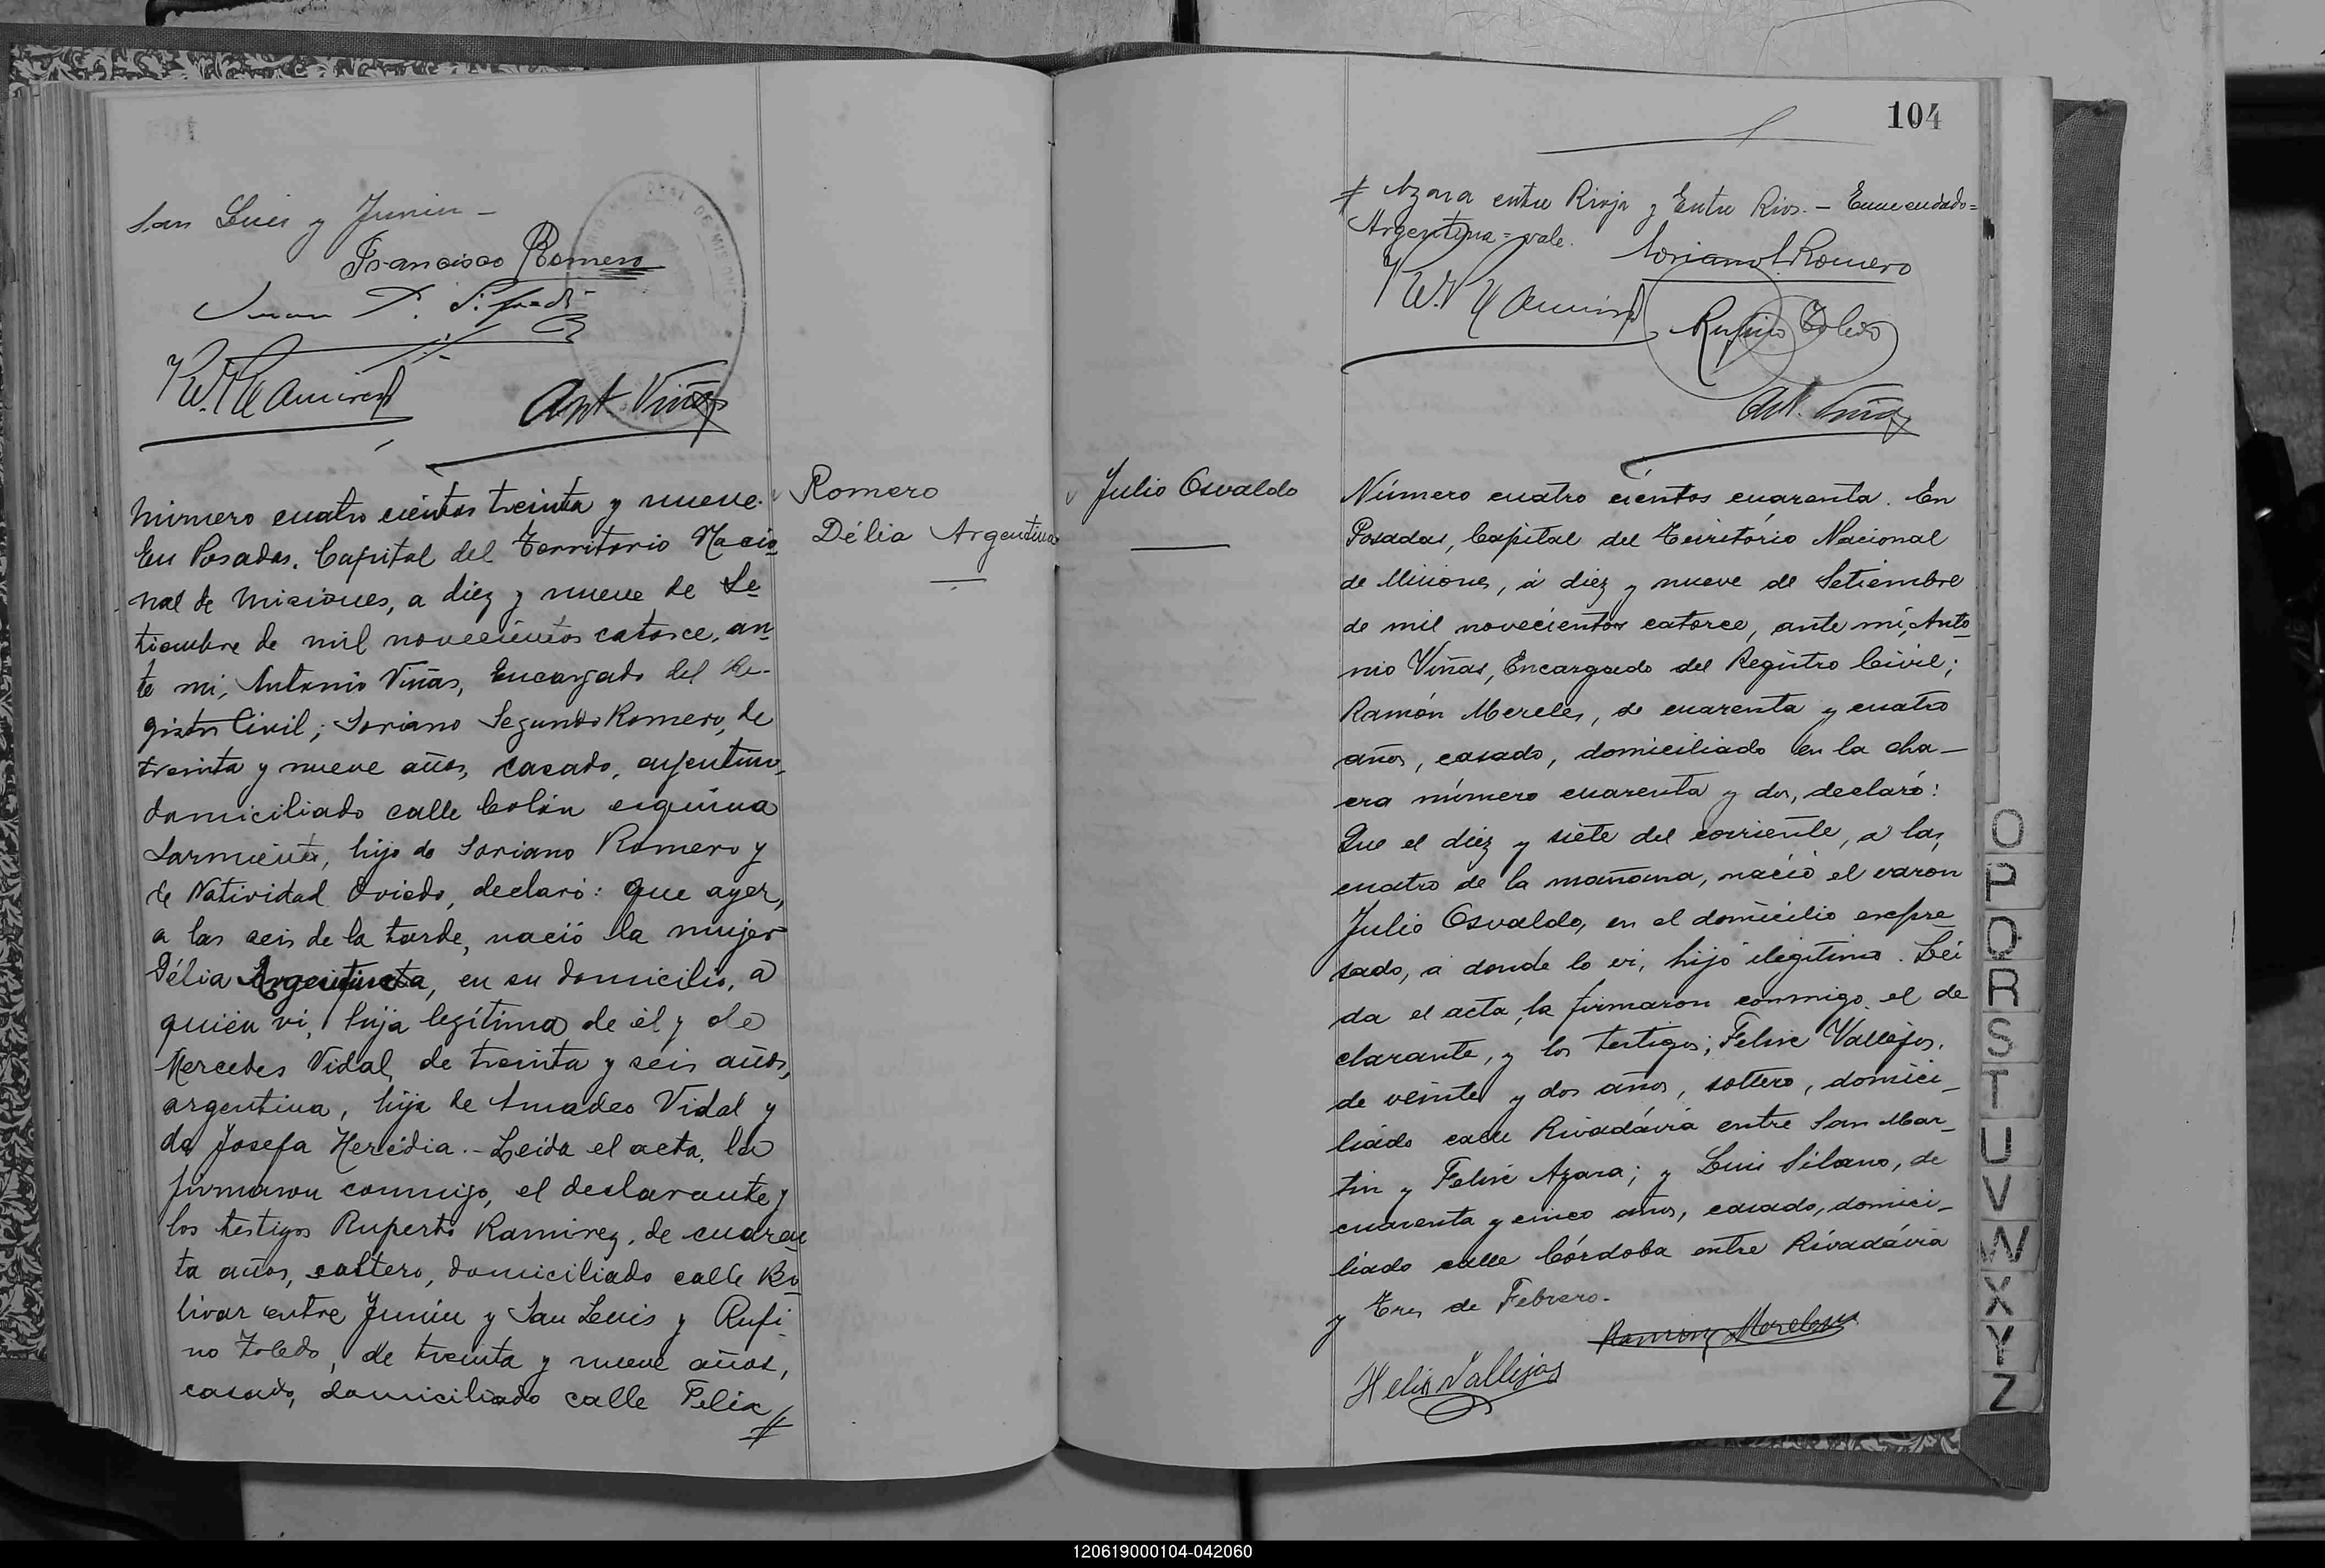 San Luis y Junin -
Francisco Romero
Juan P.
R. Ramirez
Ant Viñas
Número cuatro cientos treinta y nueve.
En Posadas, Capital del Territorio Nacio
nal de Misiones, a diez y nueve de Se
tiembre de mil novecientos catorce, an
te mi, Antonio Viñas, Encargado del Re-
gistro Civil; Soriano Segundo Romero, de
treinta y nueve años, casado, argentino,
domiciliado calle Colón esquina
Sarmiento, hijo de Soriano Romero y
de Natividad Oviedo, declaró: que ayer,
a las seis de la tarde, nació la mujer
Délia Argentina, en su domicilio, a
quien vi, hija legítima de él y de
Mercedes Vidal, de treinta y seis años,
argentina, hija de Amadeo Vidal y
de Josefa Herédia.- Leida el acta, la
firmaron conmigo, el declarante y
los testigos Ruperto Ramirez, de cuaren
ta años, soltero, domiciliado calle Bo
livar entre Junin y San Luis y Rufi
no Toledo, de treinta y nueve años,
casado, domiciliado calle Felix
#
Romero
Délia Argentina
104
# Azara entre Rioja y Entre Rios. - Enmendado=
Argentina = vale.
Soriano S. Romero
R. Ramirez
Rufino Toledo
Ant. Viñas
Julio Osvaldo
Número cuatro cientos cuarenta. En
Posadas, Capital del Território Nacional
de Misiones, á diez y nueve de Setiembre
de mil novecientos catorce, ante mi, Anto
nio Viñas, Encargado del Registro Civil;
Ramón Mereles, de cuarenta y cuatro
años, casado, domiciliado en la cha-
cra número cuarenta y dos, declaró:
Que el diez y siete del corriente, a las
cuatro de la mañana, nació el varon
Julio Osvaldo, en el domicilio expre
sado, a donde lo vi, hijo ilegitimo. Lei
da el acta, la firmaron conmigo, el de
clarante, y los testigos; Felix Vallejos,
de veinte y dos años, soltero, domici-
liado calle Rivadávia entre San Mar-
tin y Felix Azara; y Luis Silano, de
cuarenta y cinco años, casado, domici-
liado calle Córdoba entre Rivadávia
y Tres de Febrero.
Ramon Mereles
Felix Vallejos
O
P
Q
R
S
T
U
V
W
X
Y
Z
120619000104-042060